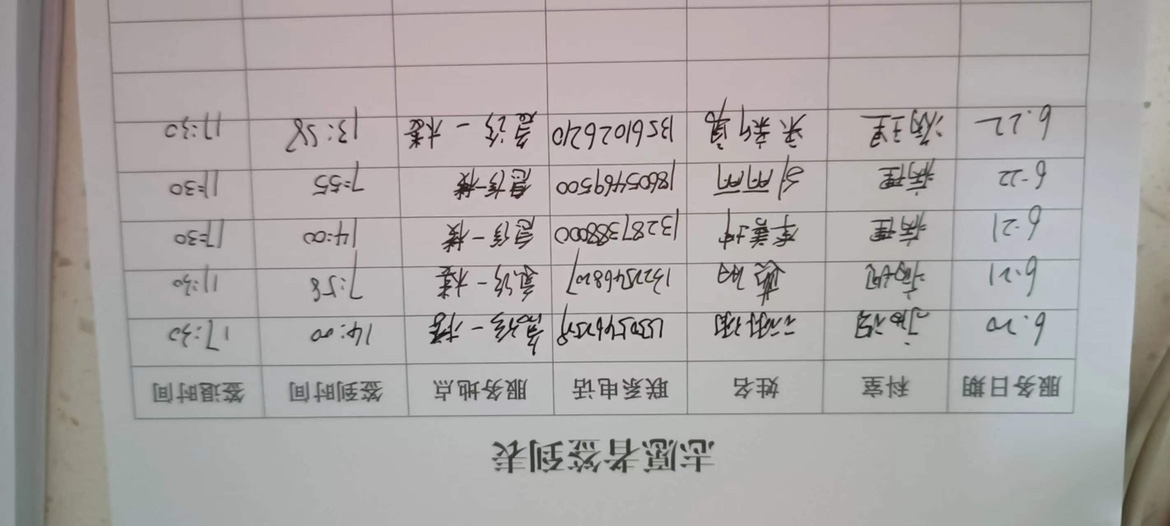 志愿者签到表
服务日期 科室 姓名 联系电话 服务地点 签到时间 签退时间
6.20 病理 急诊一楼 14:00 17:30
6.21 病理 急诊一楼 7:58 11:30
6.21 病理 13287388000 急诊一楼 14:00 17:30
6.22 病理 18605469500 急诊一楼 7:55 11:30
6.22 病理 13561026210 急诊一楼 13:58 17:30